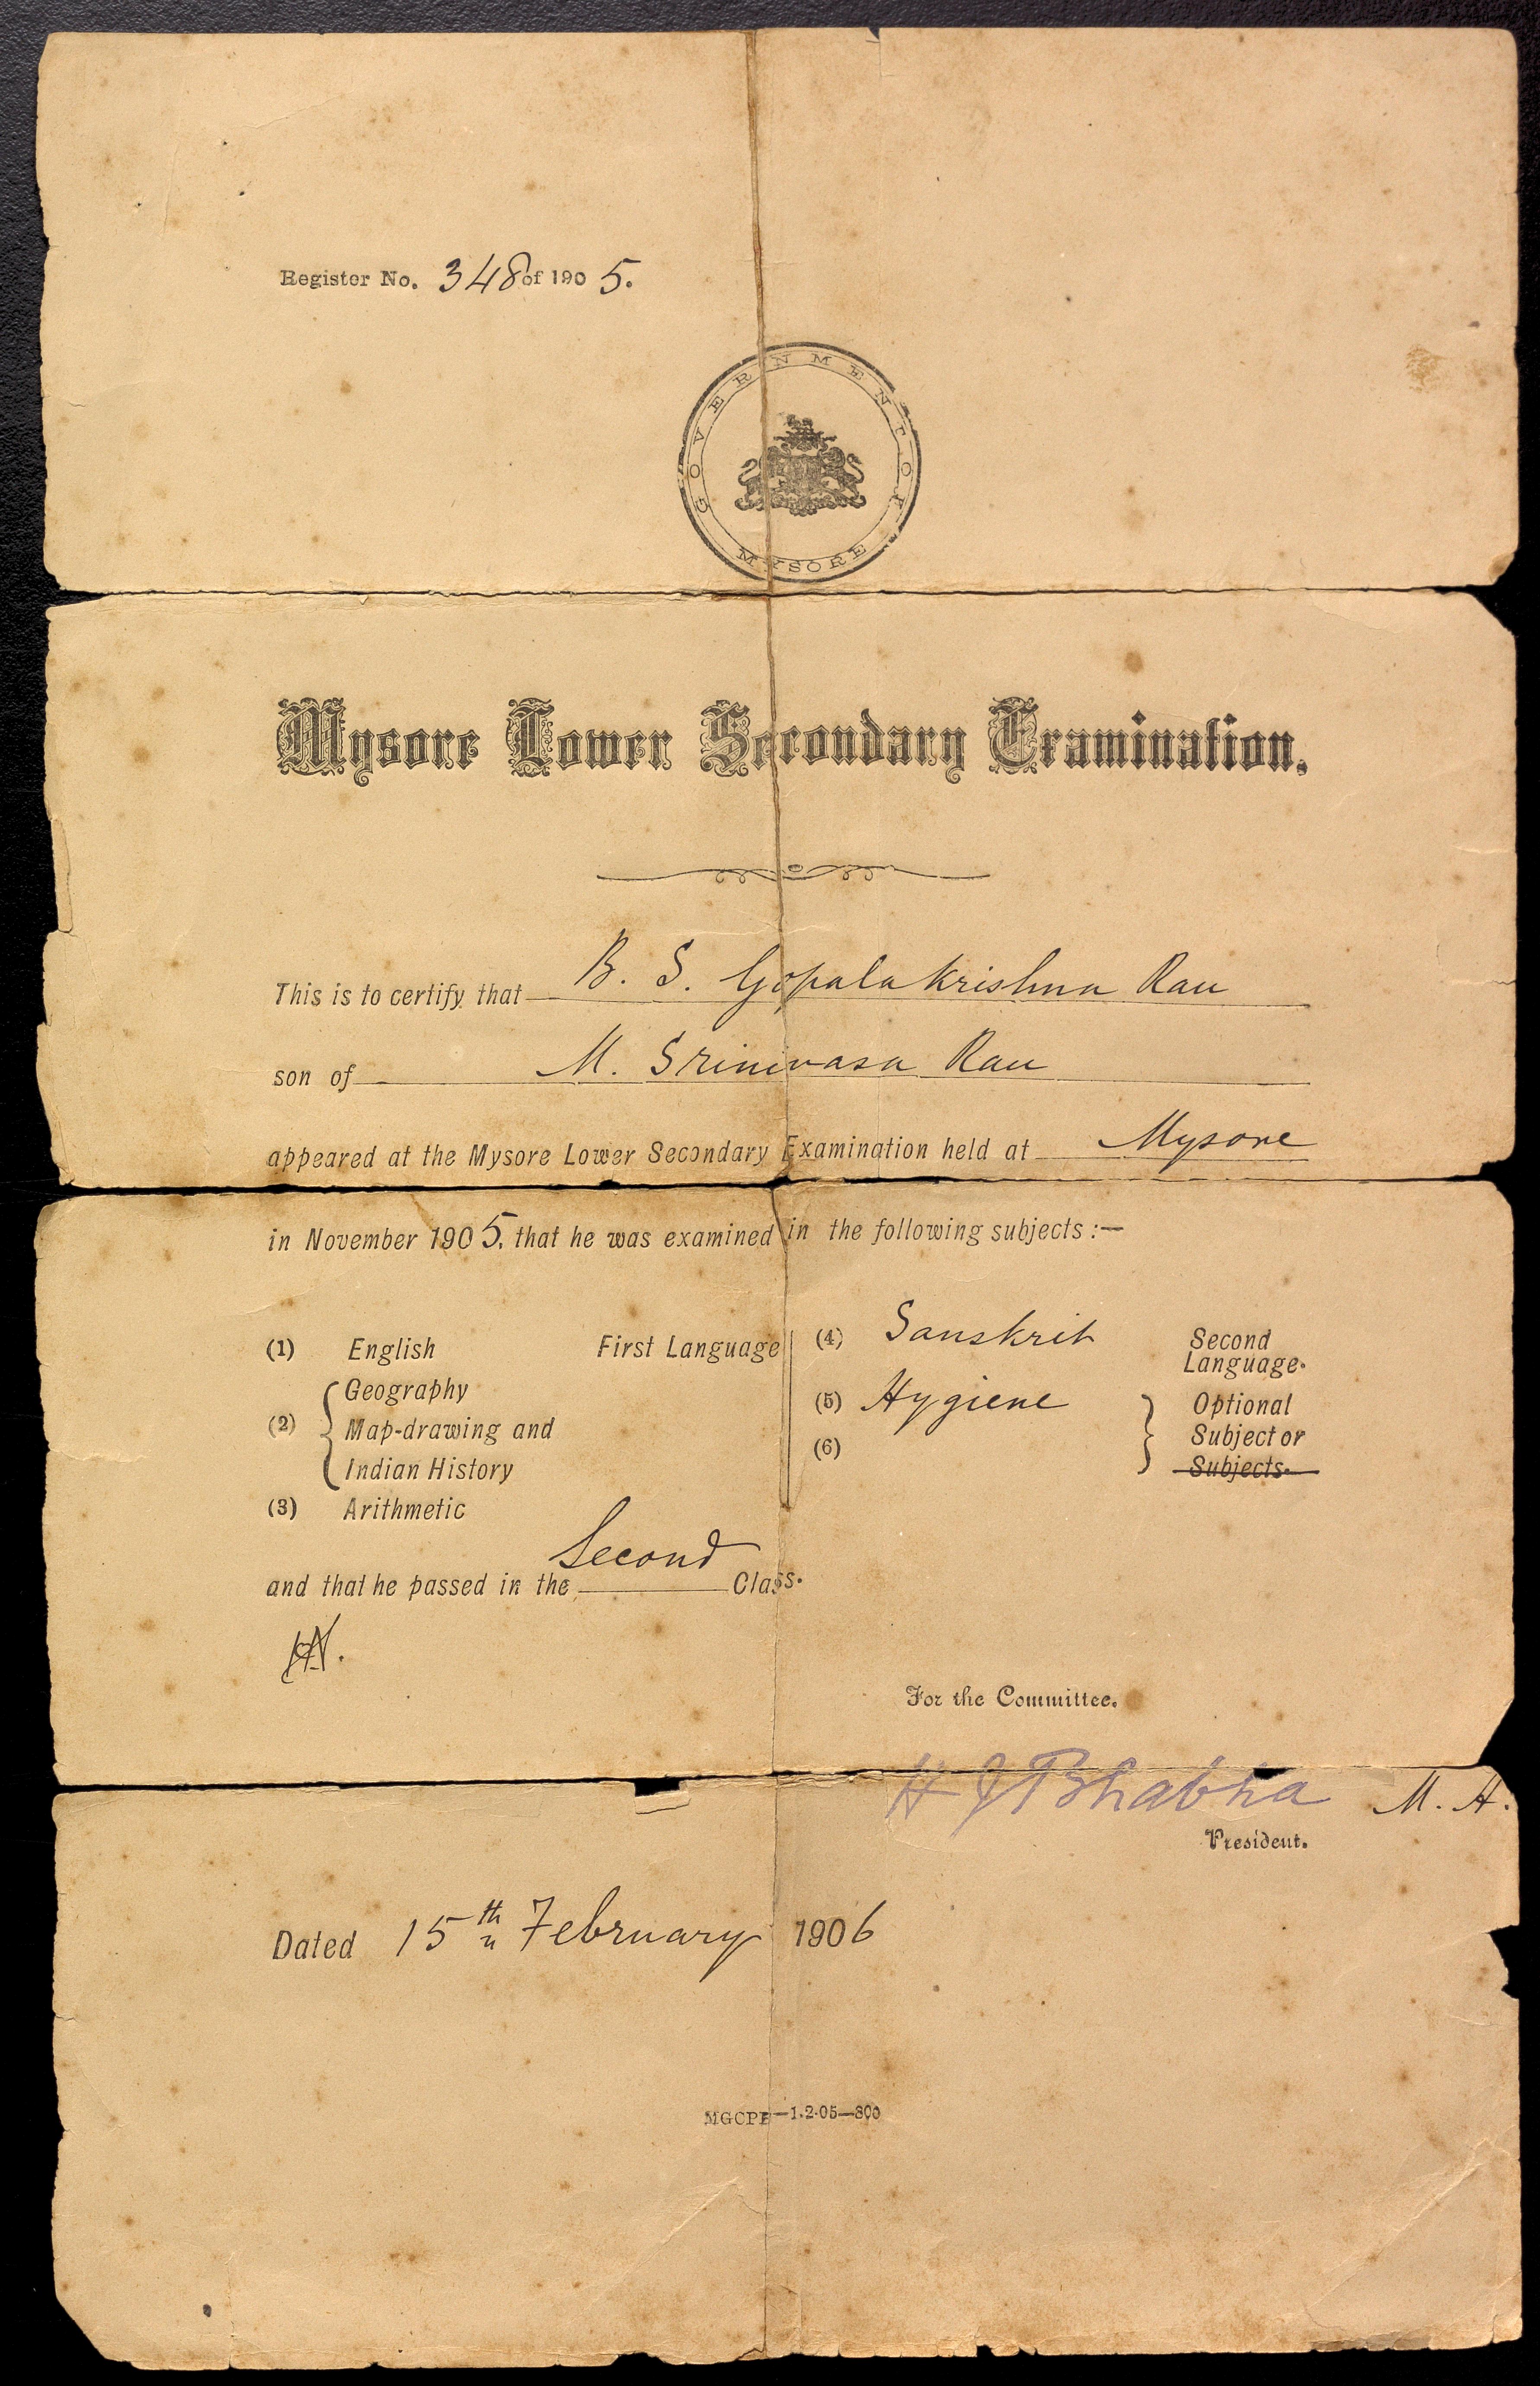 Register No. 348 of 1905.
GOVERNMENT OF
MYSORE
Mysore Lower Secondary Examination.
This is to certify that B. S. Gopalakrishna Rau
son of M. Srinivasa Rau
appeared at the Mysore Lower Secondary Examination held at Mysore
in November 1905, that he was examined in the following subjects :—
(1) English First Language
(2) Geography
Map-drawing and
Indian History
(3) Arithmetic
(4) Sanskrit Second
Language.
(5) Hygiene Optional
(6) Subject or
Subjects.
and that he passed in the Second Class.
For the Committee.
H J Bhabha M. A.
President.
Dated 15th February 1906
MGCPB—1.2-05—800